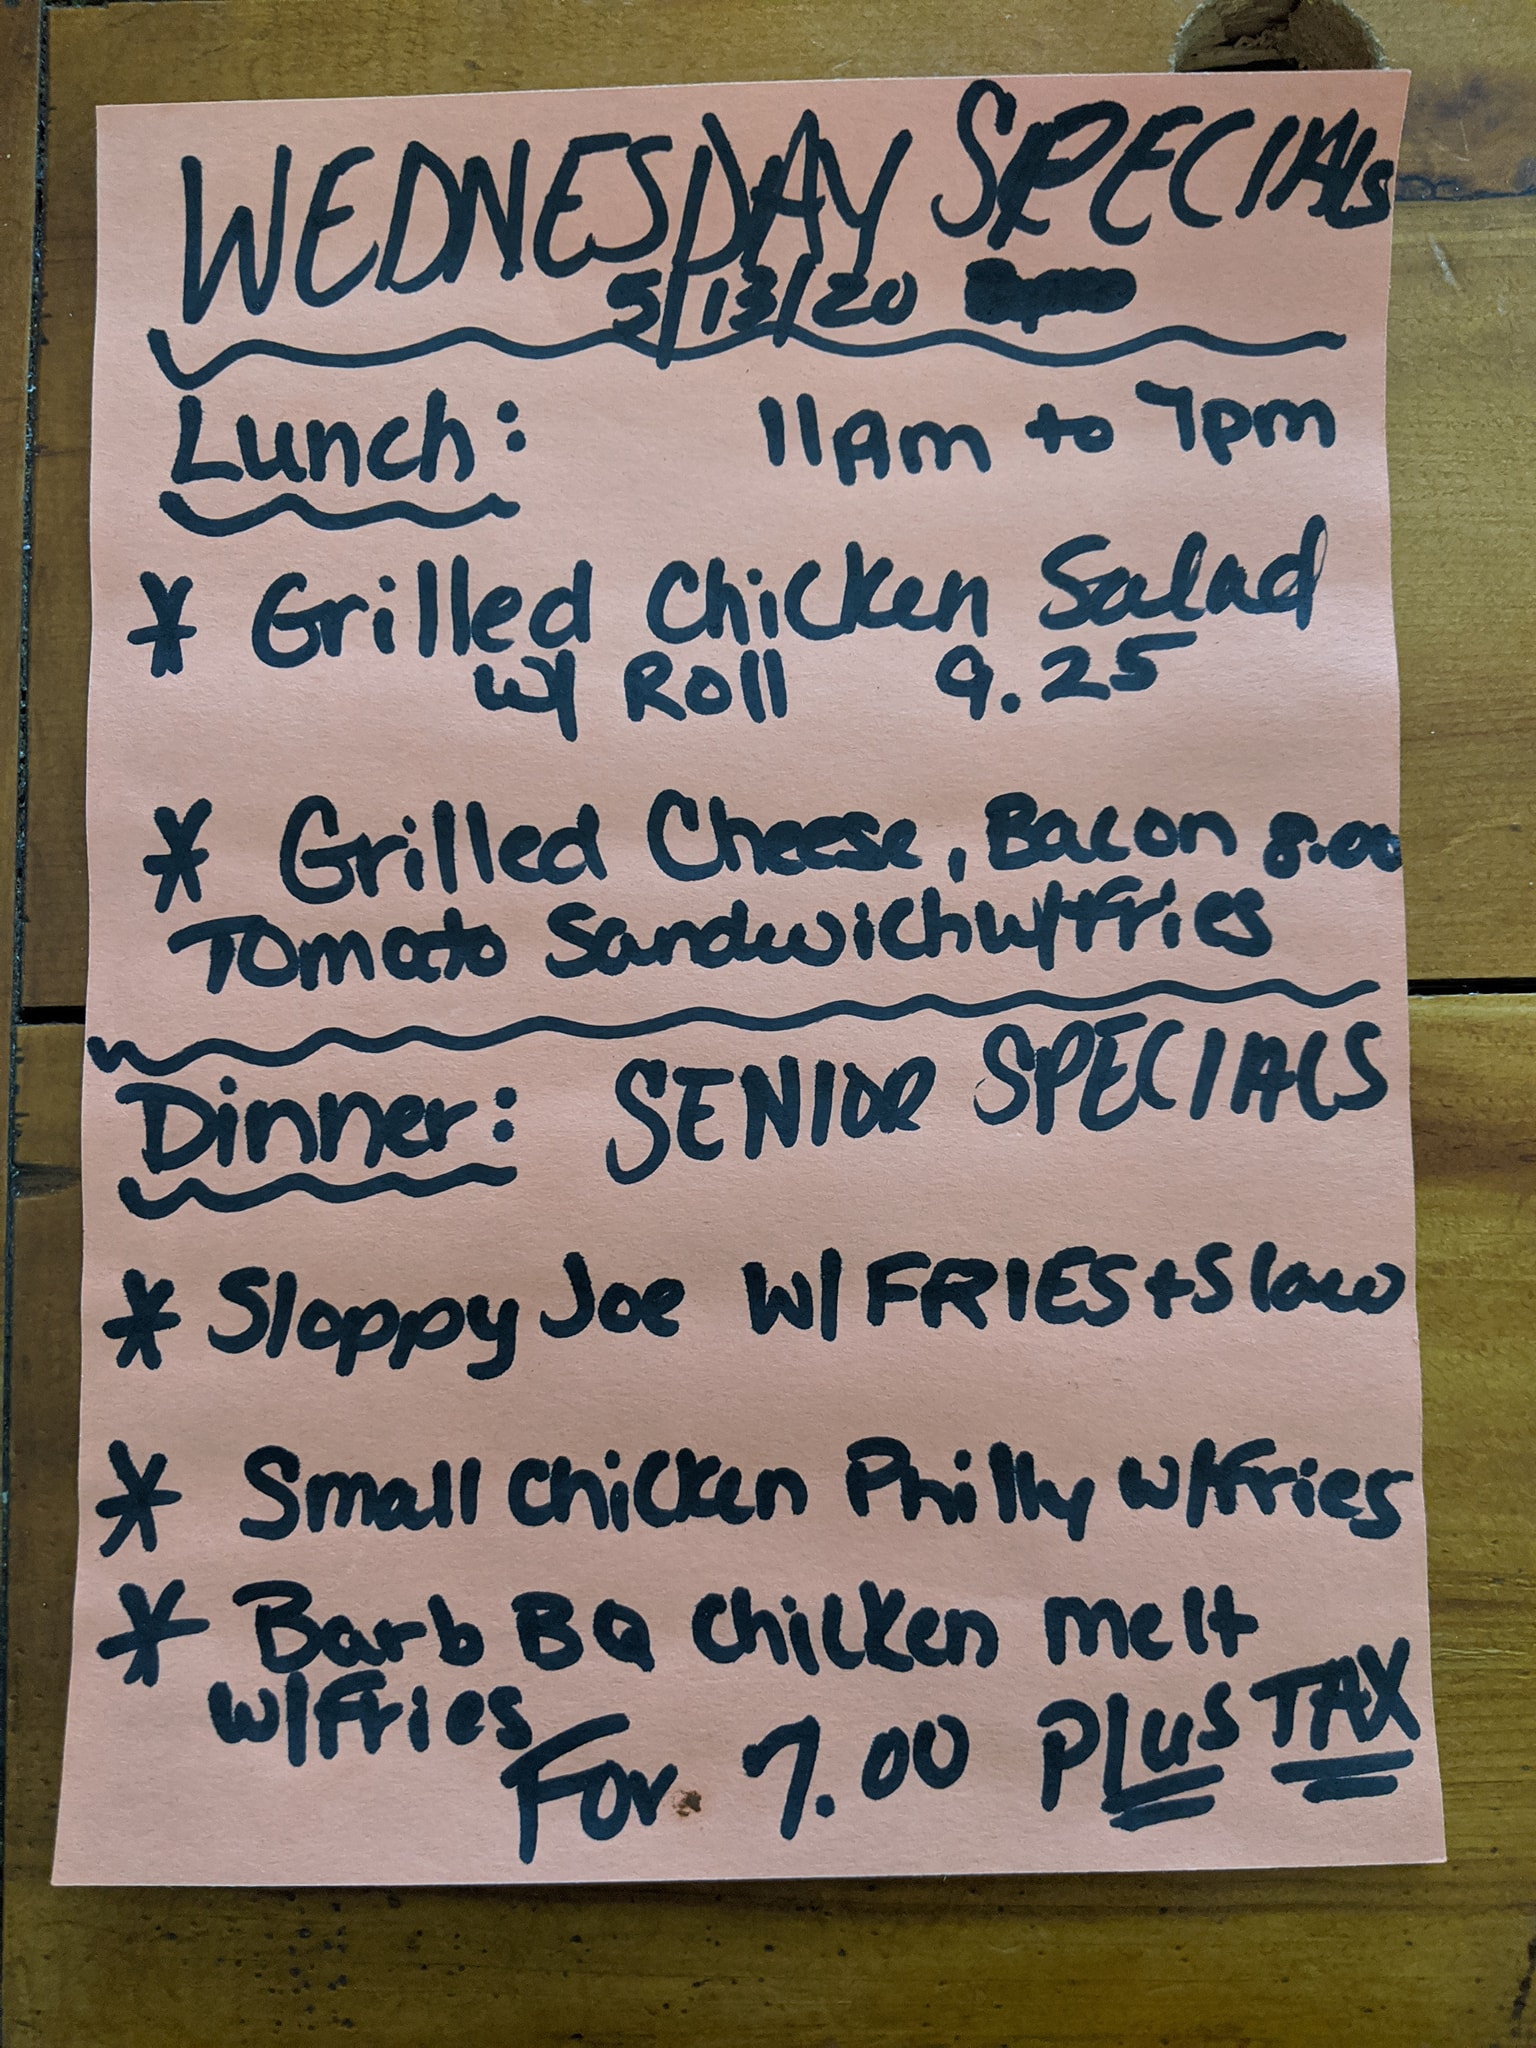 WEDNESDAY SPECIALS
5/13/20
Lunch: 11Am to 7pm
* Grilled Chicken Salad
w/ Roll 9.25
* Grilled Cheese, Bacon 8.00
Tomato Sandwich w/Fries
Dinner: SENIOR SPECIALS
* Sloppy Joe W/ FRIES + Slaw
* Small Chicken Philly w/Fries
* Barb BQ Chicken melt
w/Fries
For 7.00 PLus TAX